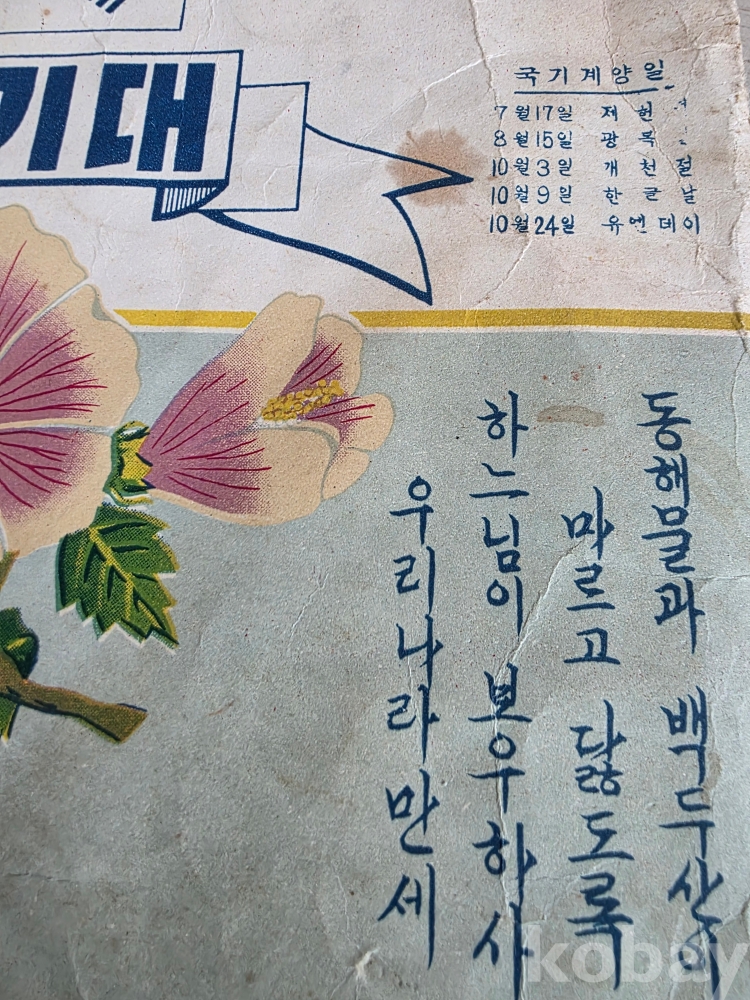 기대
국기계양일
7월17일 제헌
8월15일 광복
10월3일 개천절
10월9일 한글날
10월24일 유엔데이
동해물과 백두산이
마르고 닳도록
하느님이 보우하사
우리나라만세
kobay